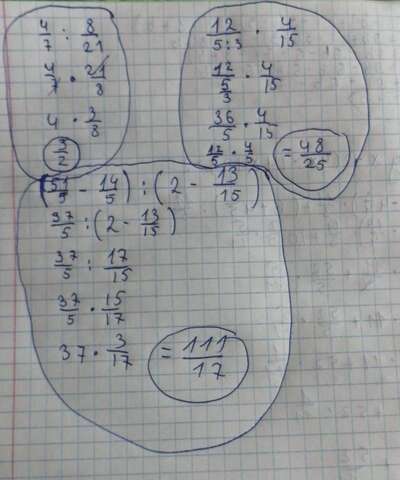 4/7 : 8/21
4/7 · 21/8
4 · 3/8
3/2
12/5:3 · 4/15
12/(5/3) · 4/15
36/5 · 4/15
12/5 · 4/5 = 48/25
(51/5 - 14/5) : (2 - 13/15)
37/5 : (2 - 13/15)
37/5 : 17/15
37/5 · 15/17
37 · 3/17 = 111/17